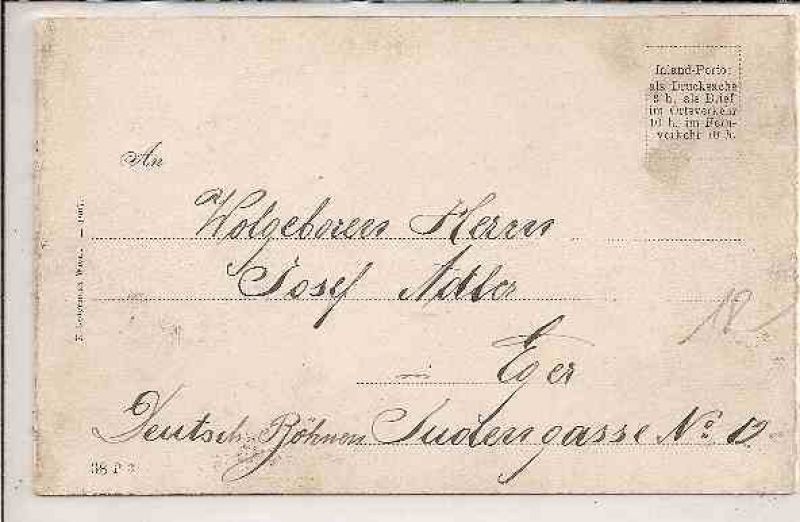 Inland-Porto:
als Drucksache
3 h, als Brief
im Ortsverkehr
10 h, im Fern-
verkehr 10 h.
An
Wolgeboren Herrn
Josef Adler
Eger
Deutsch-Böhmen Judengasse No. 12
12
38 P 3